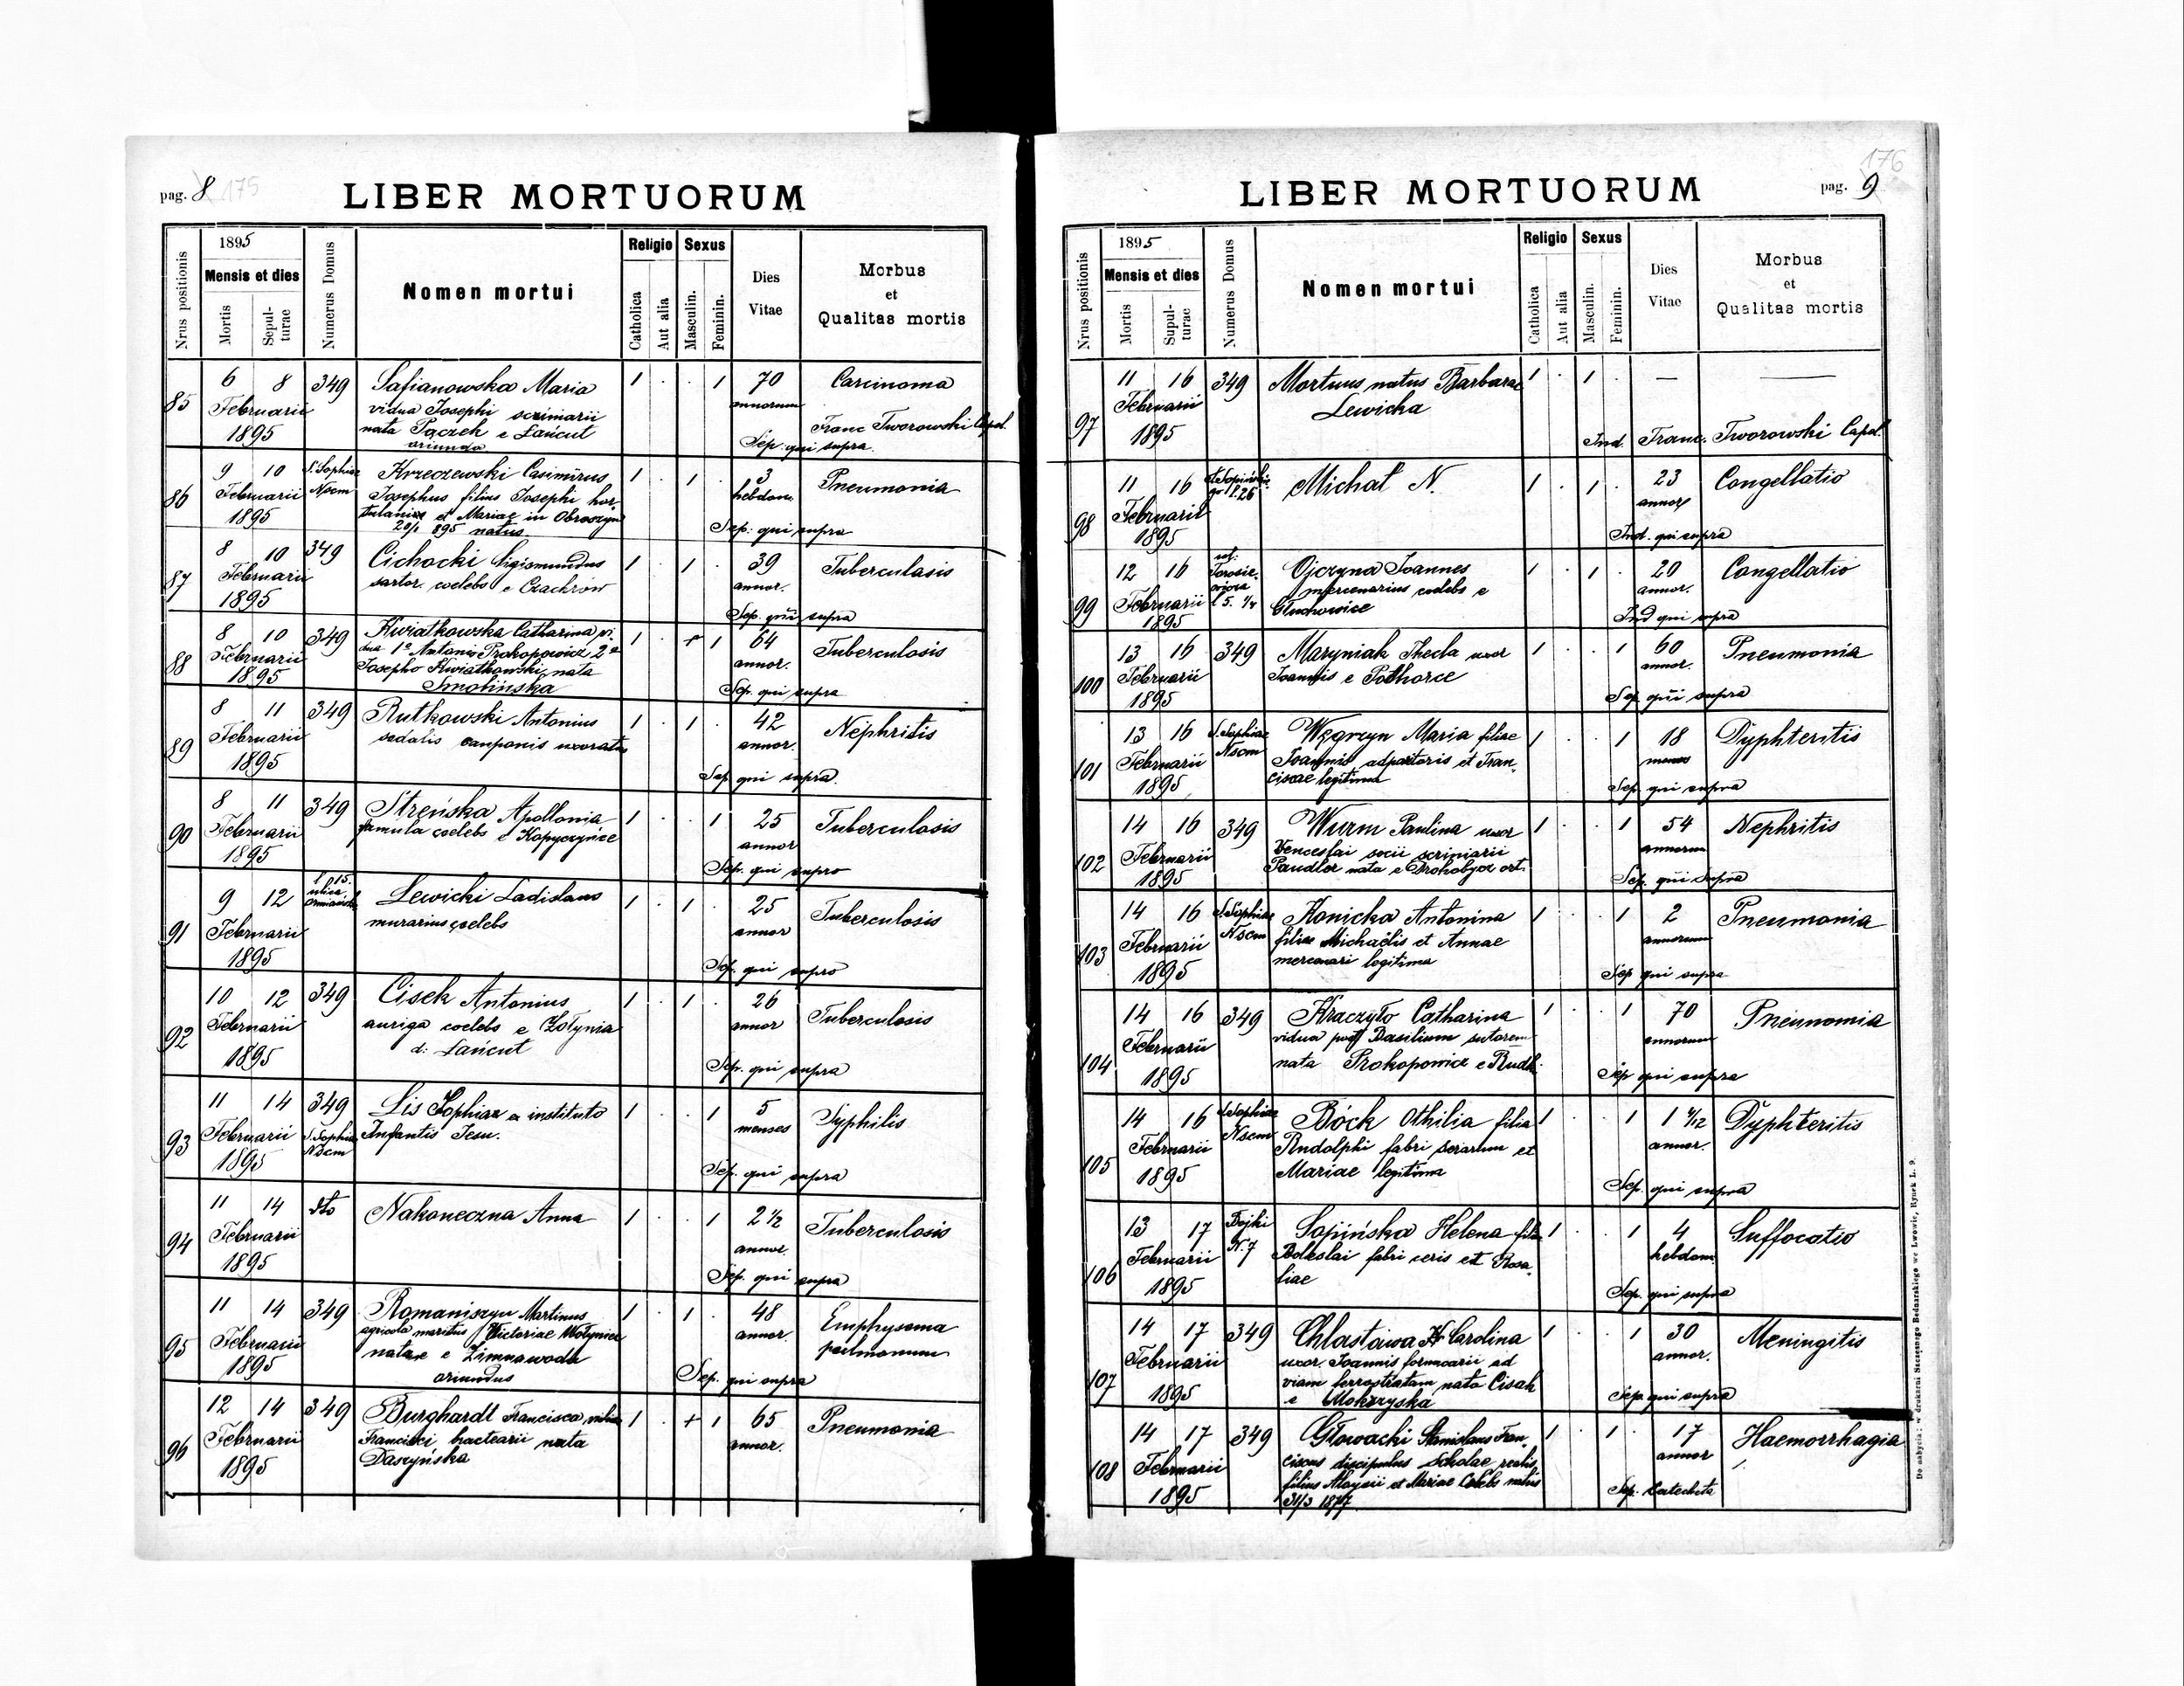 pag. 8 175
LIBER MORTUORUM
Nrus positionis
1895
Mensis et dies
Mortis
Sepul-
turae
Numerus Domus
Nomen mortui
Religio
Catholica
Aut alia
Sexus
Masculin.
Feminin.
Dies
Vitae
Morbus
et
Qualitas mortis
85 6 8 349 Safianowska Maria 1 . . 1 70 Carcinoma
Februarii vidua Josephi scriniarii annorum
1895 nata Pączek e Łańcut Franc Tworowski Capel.
oriunda Sep. qui supra
86 9 10 S. Sophiae Krzeczewski Casimirus 1 . 1 . 3 Pneumonia
Februarii Nscm Josephus filius Josephi hor- hebdom.
1895 tulaniae et Mariae in Obroszyn
20/1 895 natus. Sep: qui supra
87 8 10 349 Cichocki Sigismundus 1 . 1 . 39 Tuberculosis
Februarii sartor coelebs e Czachrow annor.
1895 Sep. qui supra
88 8 10 349 Kwiatkowska Catharina vi- 1 . + 1 64 Tuberculosis
Februarii dua 1º Antonio Prokopowicz, 2º annor.
1895 Josepho Kwiatkowski, nata
Smolińska Sep. qui supra
89 8 11 349 Rutkowski Antonius 1 . 1 . 42 Nephritis
Februarii sodalis cauponis uxoratus annor.
1895 Sep. qui supra.
90 8 11 349 Streńska Apollonia 1 . . 1 25 Tuberculosis
Februarii famula coelebs e Kopyczyńce annor
1895 Sep. qui supra
91 9 12 l p 15. Lewicki Ladislaus 1 . 1 . 25 Tuberculosis
Februarii ulica murarius coelebs annor
1895 Sep. qui supra
92 10 12 349 Cisek Antonius 1 . 1 . 26 Tuberculosis
Februarii auriga coelebs e Żołynia annor
1895 d: Łańcut Sep. qui supra
93 11 14 349 Lis Sophiae ex instituto 1 . . 1 5 Syphilis
Februarii S. Sophiae Infantis Jesu. menses
1895 Nscm Sep. qui supra
94 11 14 dto Nakoneczna Anna 1 . . 1 2 1/2 Tuberculosis
Februarii annor.
1895 Sep. qui supra
95 11 14 349 Romaniszyn Martinus 1 . 1 . 48 Emphysema
Februarii agricola maritus Victoriae Wołyniec annor. pulmonum
1895 natae e Zimnawoda
oriundus Sep. qui supra
96 12 14 349 Burghardt Francisca, vidua 1 . + 1 65 Pneumonia
Februarii Francisci bractearii nata annor.
1895 Daszyńska
176
LIBER MORTUORUM
pag. 9
Nrus positionis
1895
Mensis et dies
Mortis
Supul-
turae
Numerus Domus
Nomen mortui
Religio
Catholica
Aut alia
Sexus
Masculin.
Feminin.
Dies
Vitae
Morbus
et
Qualitas mortis
97 11 16 349 Mortuus natus Barbarae 1 . 1 . — —
Februarii Lewicka
1895 Ind. Franc. Tworowski Capel.
98 11 16 Michał N. 1 . 1 . 23 Congellatio
Februarii l. 26 annor
1895 Ind. qui supra
99 12 16 Ojczyna Joannes 1 . 1 . 20 Congellatio
Februarii mercenarius coelebs e annor.
1895 Głuchowice Ind qui supra
100 13 16 349 Maryniak Thecla uxor 1 . . 1 60 Pneumonia
Februarii Joannis e Podhorce annor.
1895 Sep. qui supra
101 13 16 S. Sophiae Węgrzyn Maria filiae 1 . . 1 18 Dyphteritis
Februarii Nscm Joannis adpartoris et Fran- menses
1895 ciscae legitima Sep. qui supra
102 14 16 349 Wurm Paulina uxor 1 . . 1 54 Nephritis
Februarii Venceslai socii scriniarii annorum
1895 Paudler nata e Drohobycz ort. Sep. qui supra
103 14 16 S. Sophiae Konicka Antonina 1 . . 1 2 Pneumonia
Februarii Nscm filiae Michaëlis et Annae annorum
1895 mercenari legitima Sep qui supra
104 14 16 349 Kraczyło Catharina 1 . . 1 70 Pneunomia
Februarii vidua post Basilium sutorem annorum
1895 nata Prokopowicz e Rudki Sep qui supra
105 14 16 S. Sophiae Böck Othilia filia 1 . . 1 1 4/12 Dyphteritis
Februarii Nscm Rudolphi fabri serarum et annor.
1895 Mariae legitima Sep. qui supra
106 13 17 Bojki Sapińska Helena filia 1 . . 1 4 Suffocatio
Februarii N. 7 Boleslai fabri ceris et Rosa- hebdom.
1895 liae Sep. qui supra
107 14 17 349 Chlastawa Carolina 1 . . 1 30 Meningitis
Februarii uxor Joannis fornacarii ad annor.
1895 viam ferrostratam nata Cisak
e Mokrzyska Sep. qui supra
108 14 17 349 Głowacki Stanislaus Fran- 1 . 1 . 17 Haemorrhagia
Februarii ciscus discipulus Scholae realis annor
1895 filius Aloysii et Mariae Celebs natus
31/3 1877. Sep. Catecheta
Do nabycia: w drukarni Szczęsnego Bednarskiego we Lwowie, Rynek L. 9.